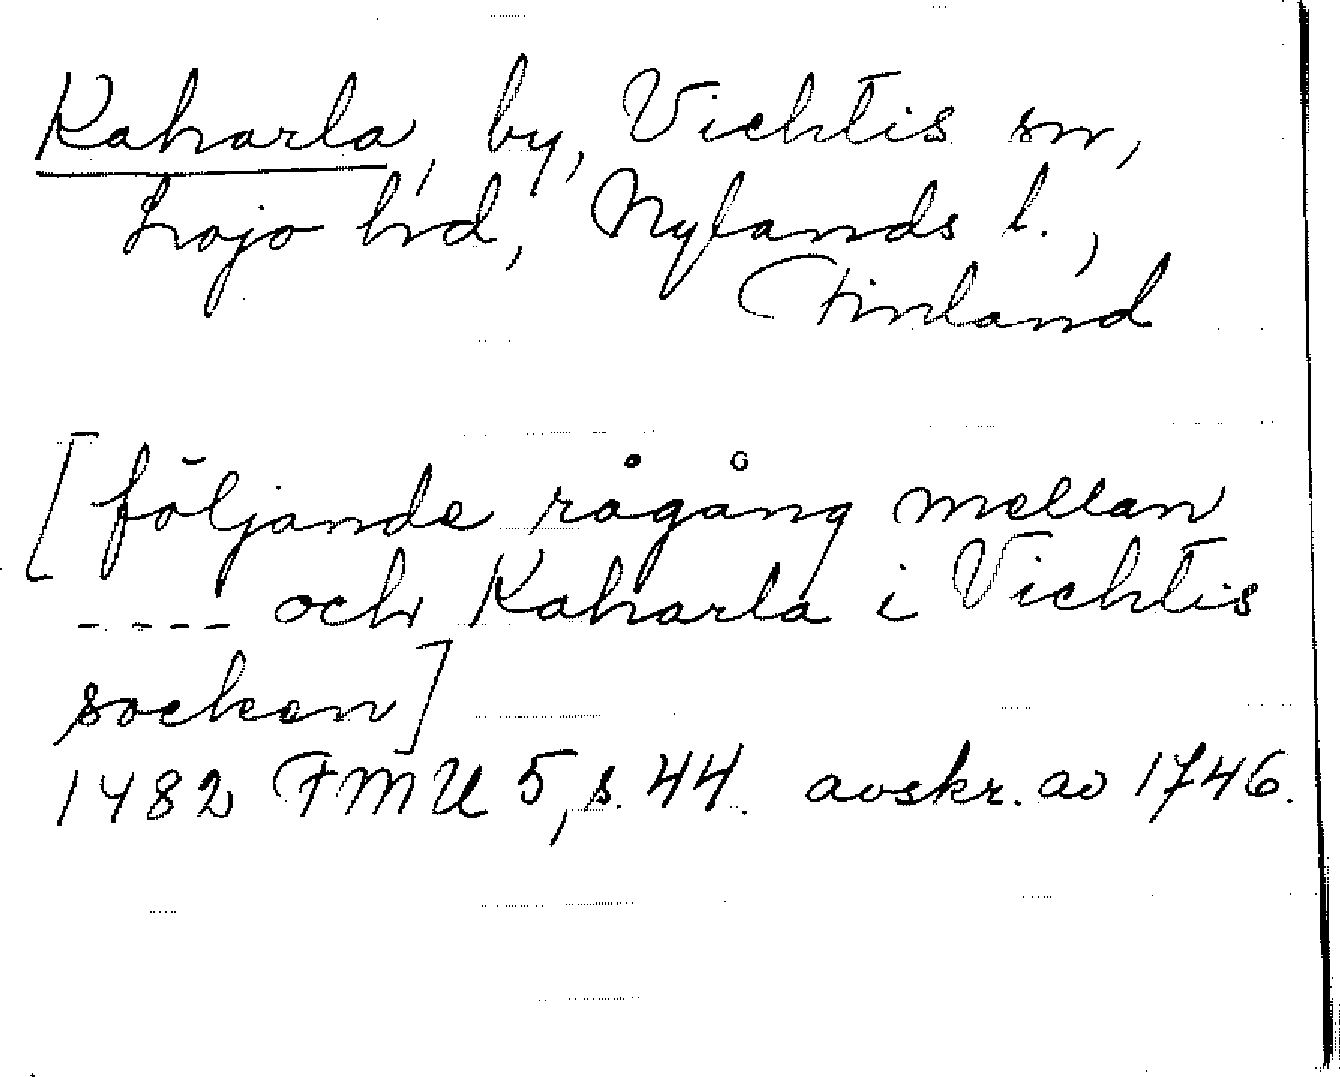 Kaharla, by, Vichtis sn,
Lojo hd, Nylands l.,
Finland
[följande rågång mellan
---- och Kaharla i Vichtis
socken]
1482 FMU 5, s. 44. avskr. av 1746.